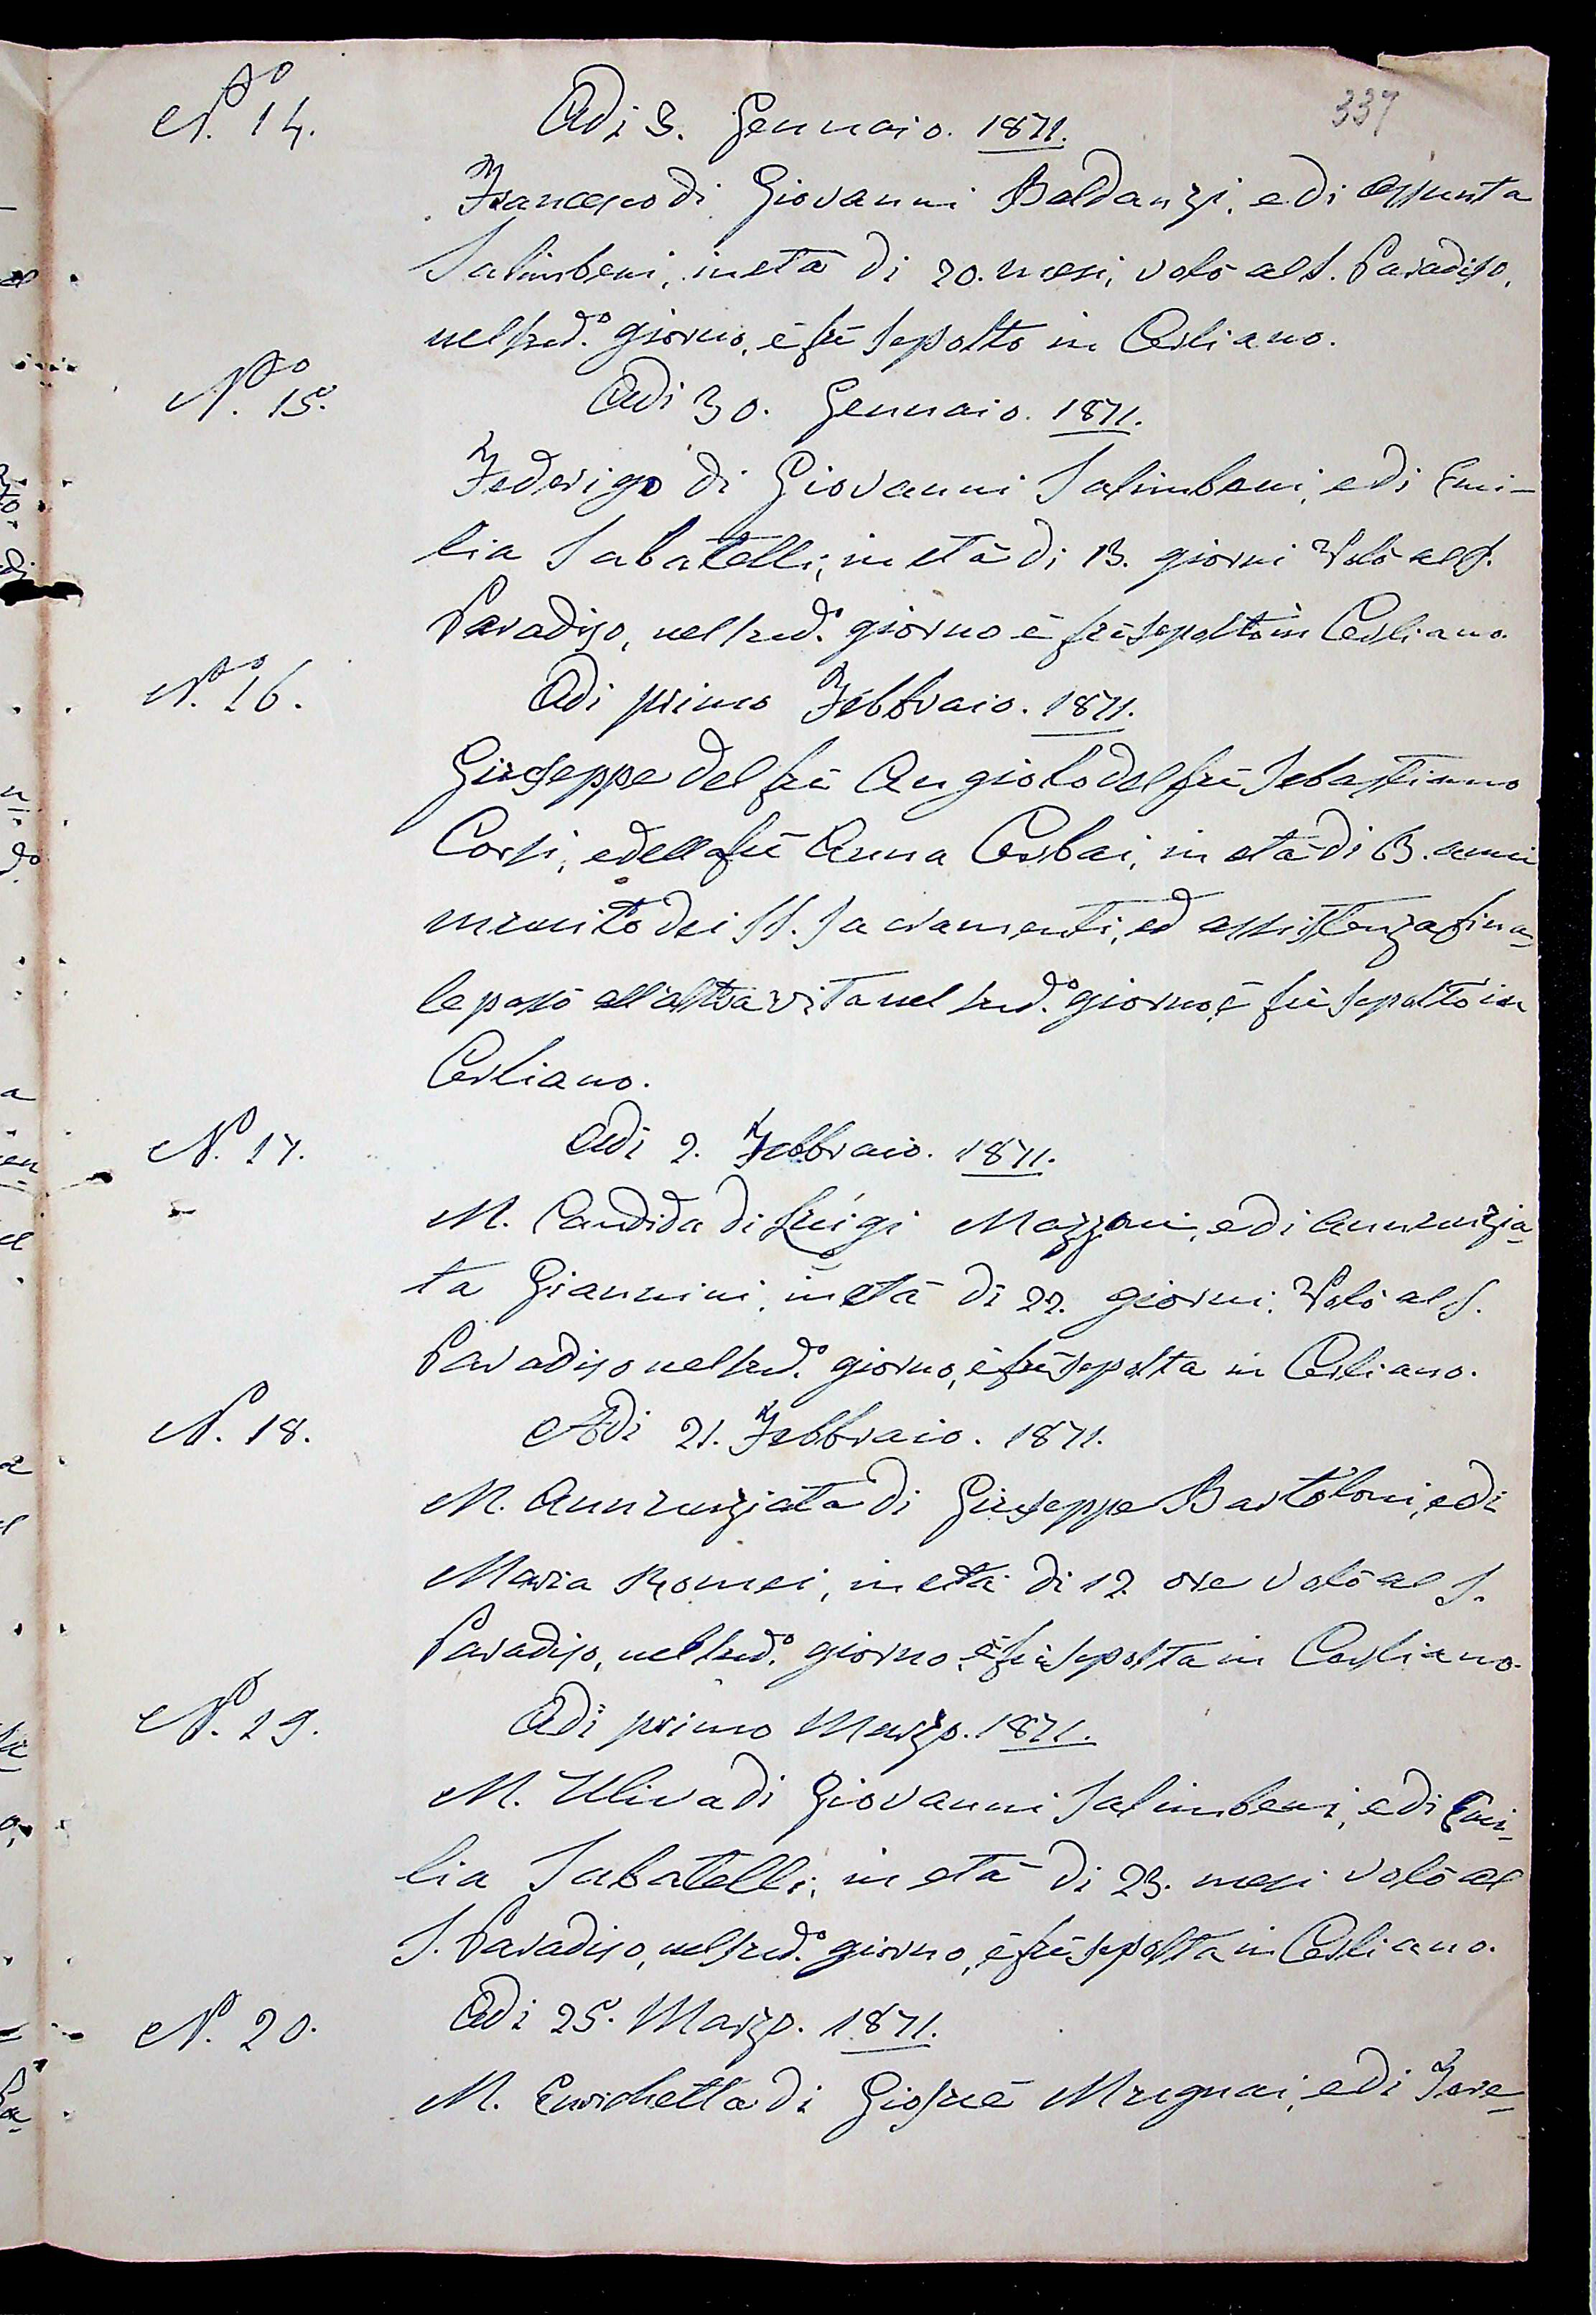 337
N.º 14. Adi 3. Gennaio. 1871.
Francesco di Giovanni Baldanzi, e di Assunta
Salimbeni, in età di 20. mesi, volò al S. Paradiso,
nel sud.º giorno, è fù sepolto in Cerliano.
N.º 15. Adi 30. Gennaio. 1871.
Federigo di Giovanni Salimbeni, e di Emi-
lia Sabatelli, in età di 13. giorni Volò al S.
Paradiso, nel sud.º giorno è fù sepolto in Cerliano.
N.º 16. Adi primo Febbraio. 1871.
Giuseppe del fù Angiolo del fù Sebastiano
Corsi, e della fù Anna Cerbai, in età di anni
munito dei SS. Sacramenti, ed assistenza fina=
le passò all'altra vita nel sud.º giorno è fù sepolto in
Cerliano.
N.º 17. Adi 2. Febbraio. 1871.
M. Candida di Luigi Mazzoni, e di Annunzia=
ta Giannini, in età di 22. giorni. Volò al S.
Paradiso nel sud.º giorno, è fù sepolta in Cerliano.
N. 18. Adi 21. Febbraio. 1871.
M. Annunziata di Giuseppe Bartoloni, e di
Maria Romei, in età di 12 ore volò al S.
Paradiso, nel sud.º giorno, è fù sepolta in Cerliano.
N.º 19. Adi primo Marzo. 1871.
M. Uliva di Giovanni Salimbeni, e di Emi=
lia Sabatelli, in età di 23. mesi volò al
S. Paradiso, nel sud.º giorno, è fù sepolta in Cerliano.
N. 20. Adi 25. Marzo. 1871.
M. Enrichetta di Giosuè Mugnai, e di Tere=